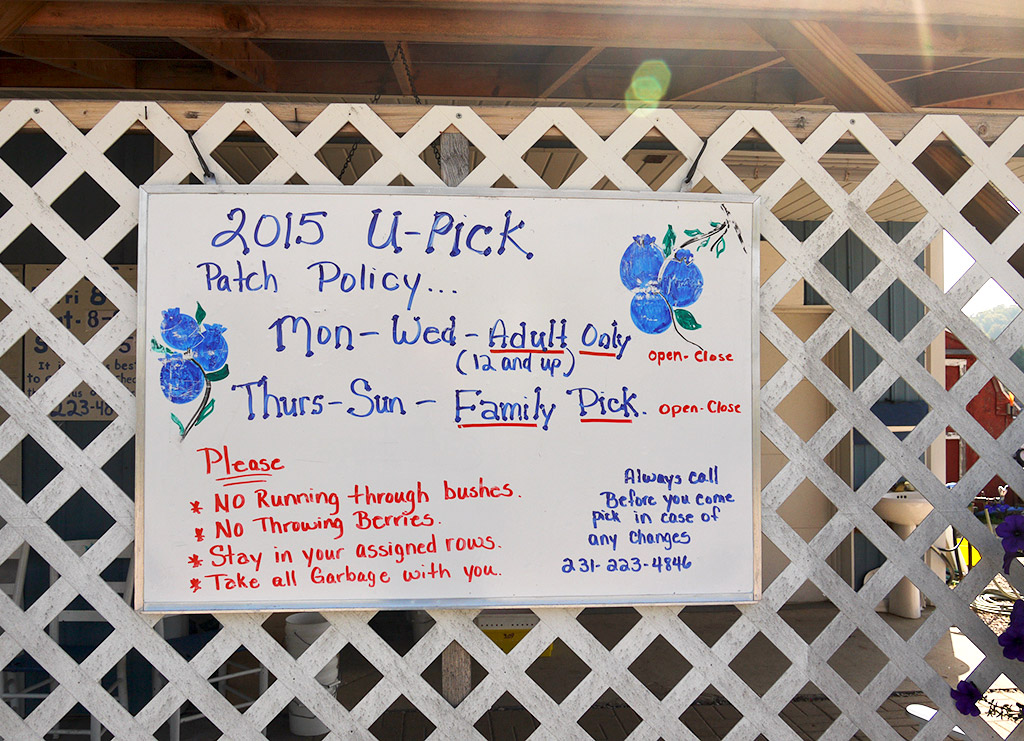 2015 U-Pick
Patch Policy...
Mon-Wed-Adult Only
(12 and up)
Open-Close
Thurs-Sun - Family Pick. Open-Close
Please
* NO Running through bushes.
* No Throwing Berries.
* Stay in your assigned rows.
* Take all Garbage with you.
Always call
Before you come
pick in case of
any changes
231-223-4846